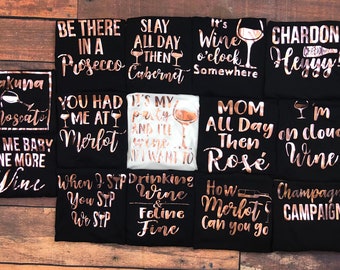 BE THERE
IN A
Prosecco
SLAY
ALL DAY
THEN
Cabernet
It's
Wine
o'clock
Somewhere
CHARDON
Heyyy!
akuna
Moscato
YOU HAD
ME AT
Merlot
IT'S MY
party
AND I'LL
wine
IF I WANT TO
MOM
ALL DAY
Then
Rosé
I'm
on cloud
Wine
ME BABY
ONE MORE
Wine
When I SIP
You SIP
We SIP
Drinking
Wine
&
Feline
Fine
How
Merlot
Can you go
Champagne
CAMPAIGN